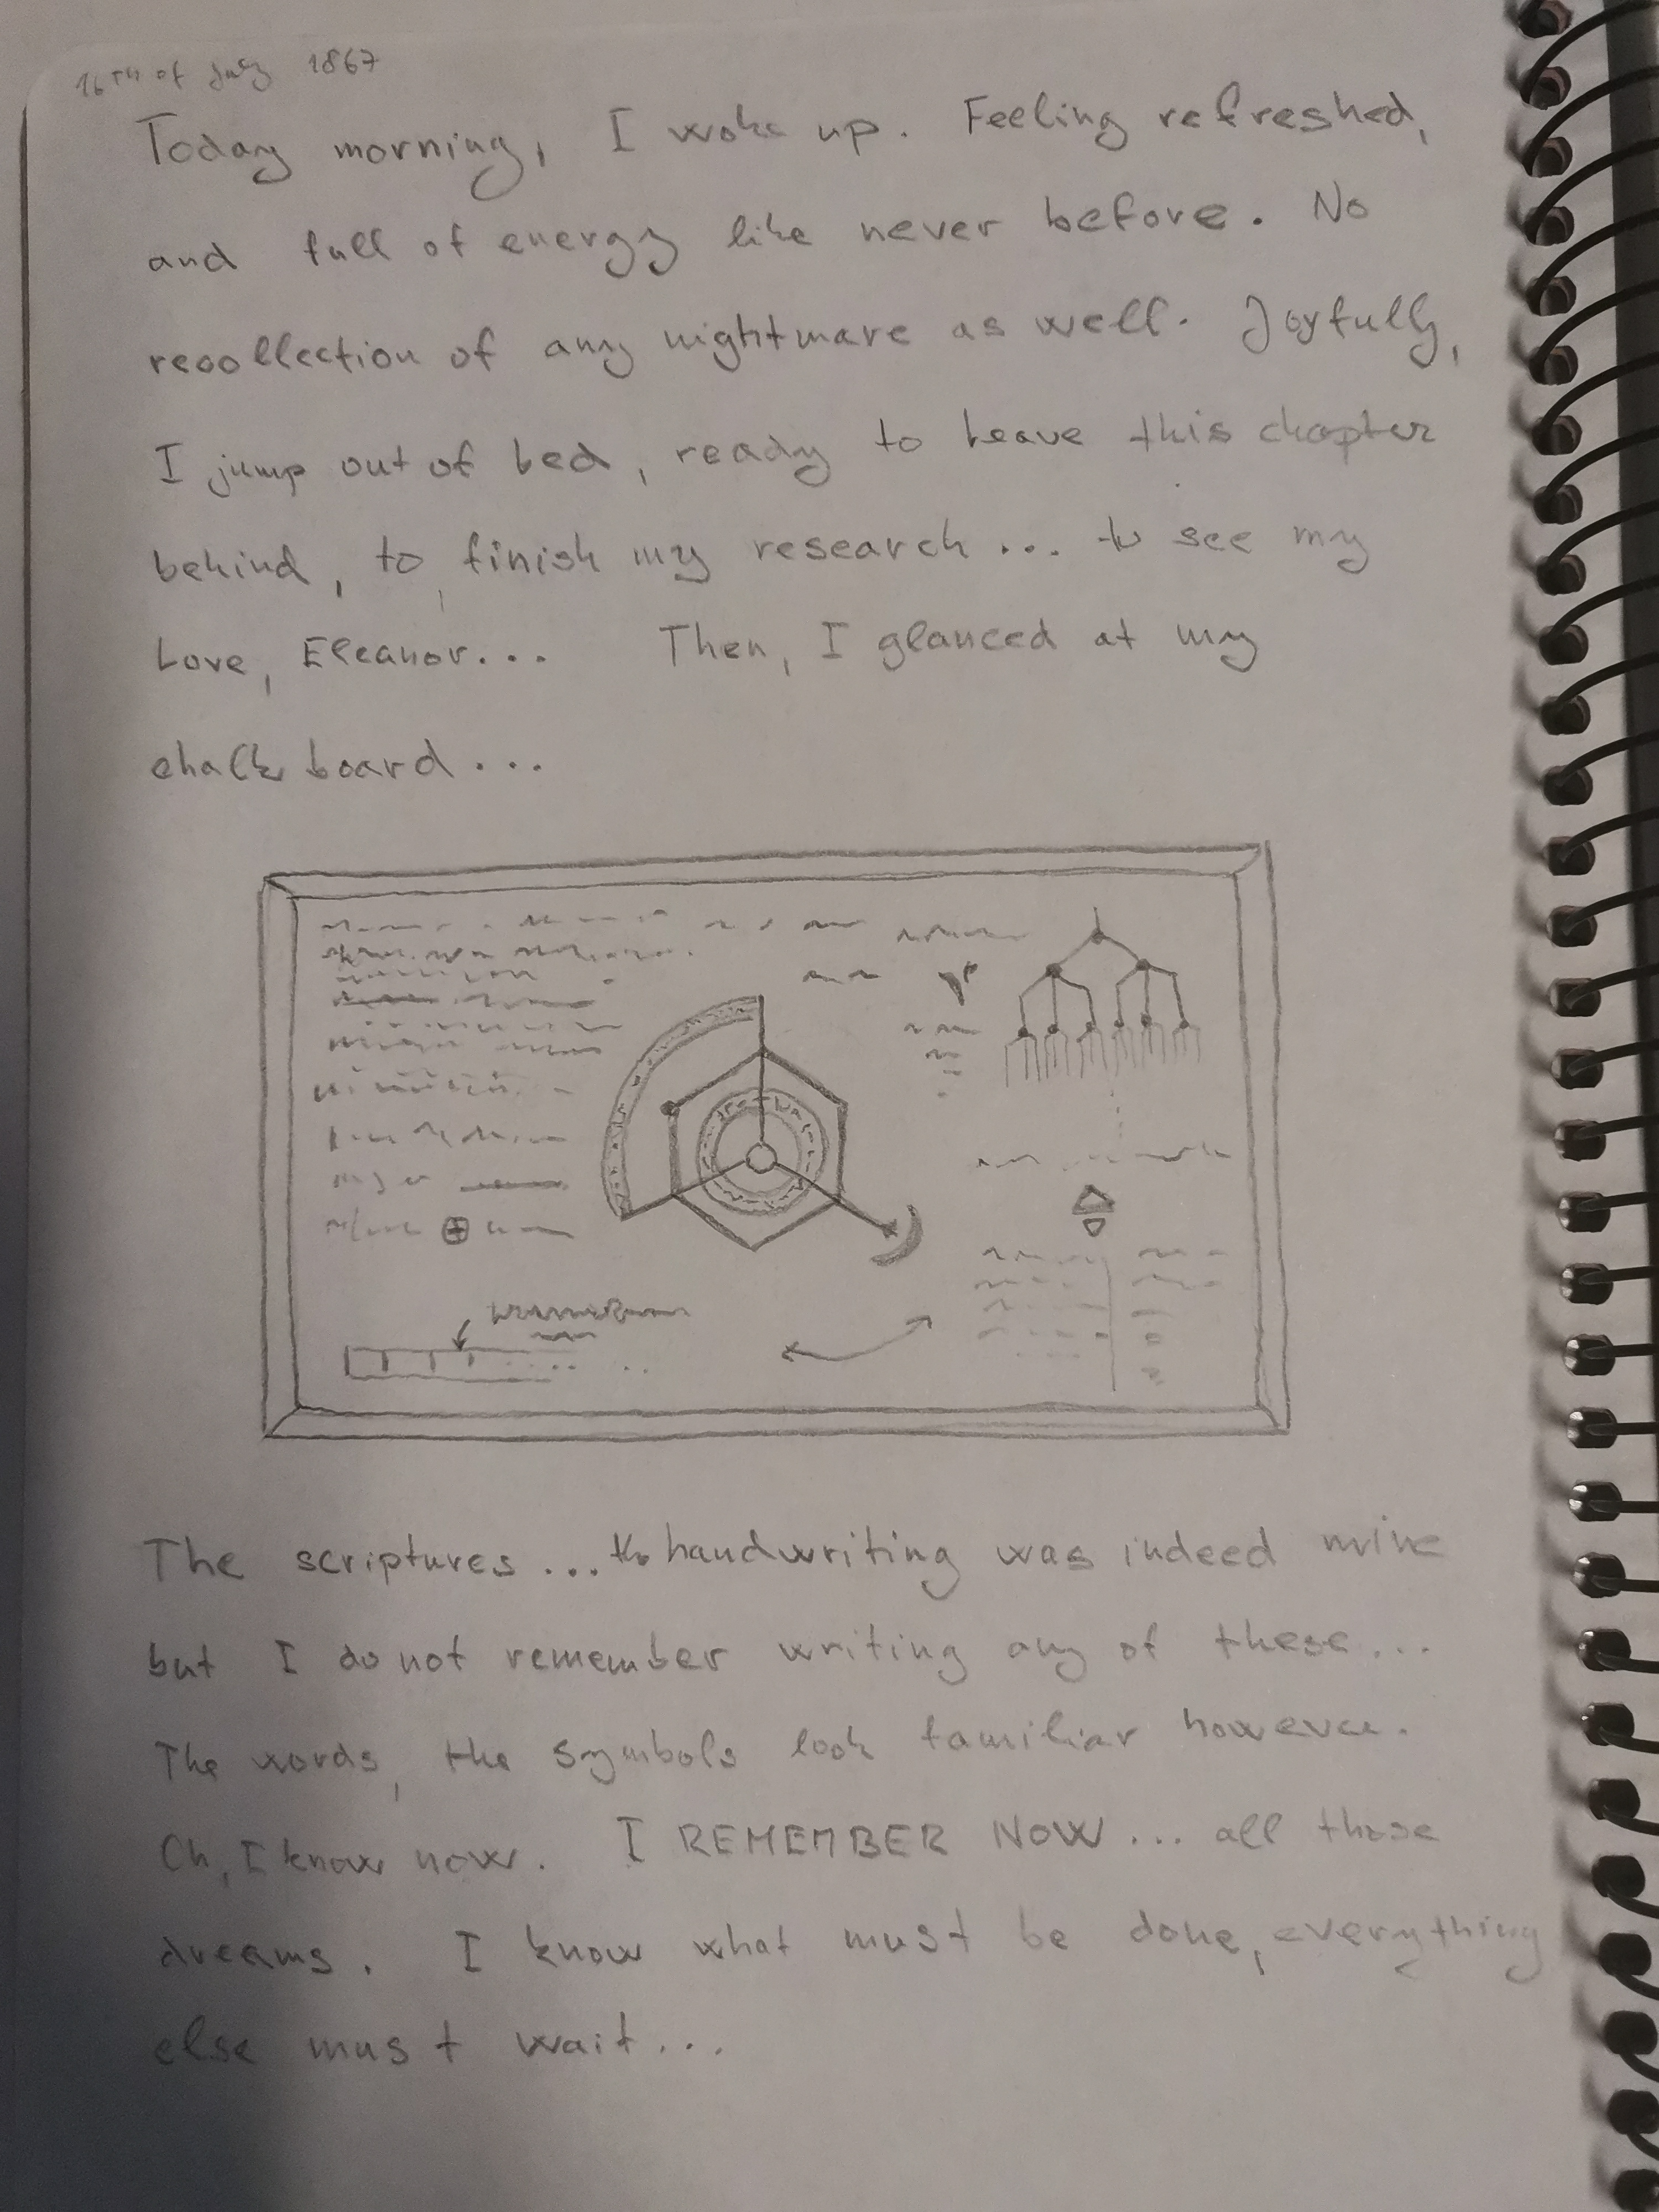 16TH of July 1867
Today morning, I woke up. Feeling refreshed,
and full of energy like never before. No
recollection of any nightmare as well. Joyfully,
I jump out of bed, ready to leave this chapter
behind, to finish my research... to see my
Love, Eleanor... Then, I glanced at my
chalkboard...
The scriptures... the handwriting was indeed mine
but I do not remember writing any of these...
The words, the symbols look familiar however.
Oh, I know now. I REMEMBER NOW... all those
dreams. I know what must be done, everything
else must wait...